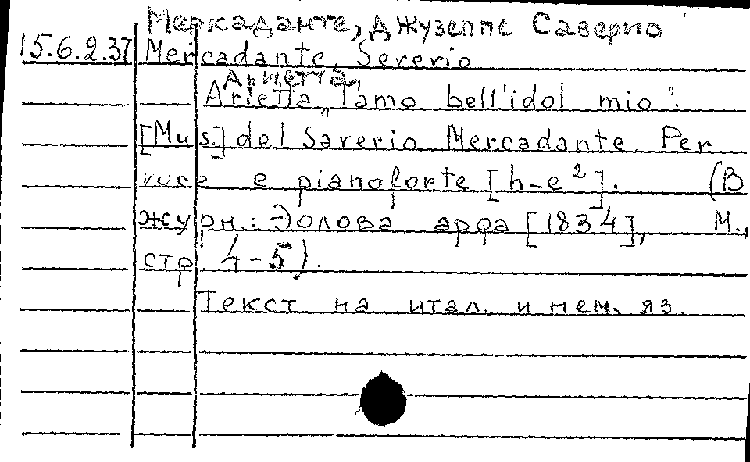 Меркаданте, Джузеппе Саверио
15.6.2.37 Mercadante, Severio
Ариетта
Arietta „T'amo bell'idol mio".
[Mus.] del Saverio Mercadante. Per
voce e pianoforte [h-e²]. (В
журн.: Эолова арфа [1834], М.,
стр. 4-5).
Текст на итал. и нем. яз.